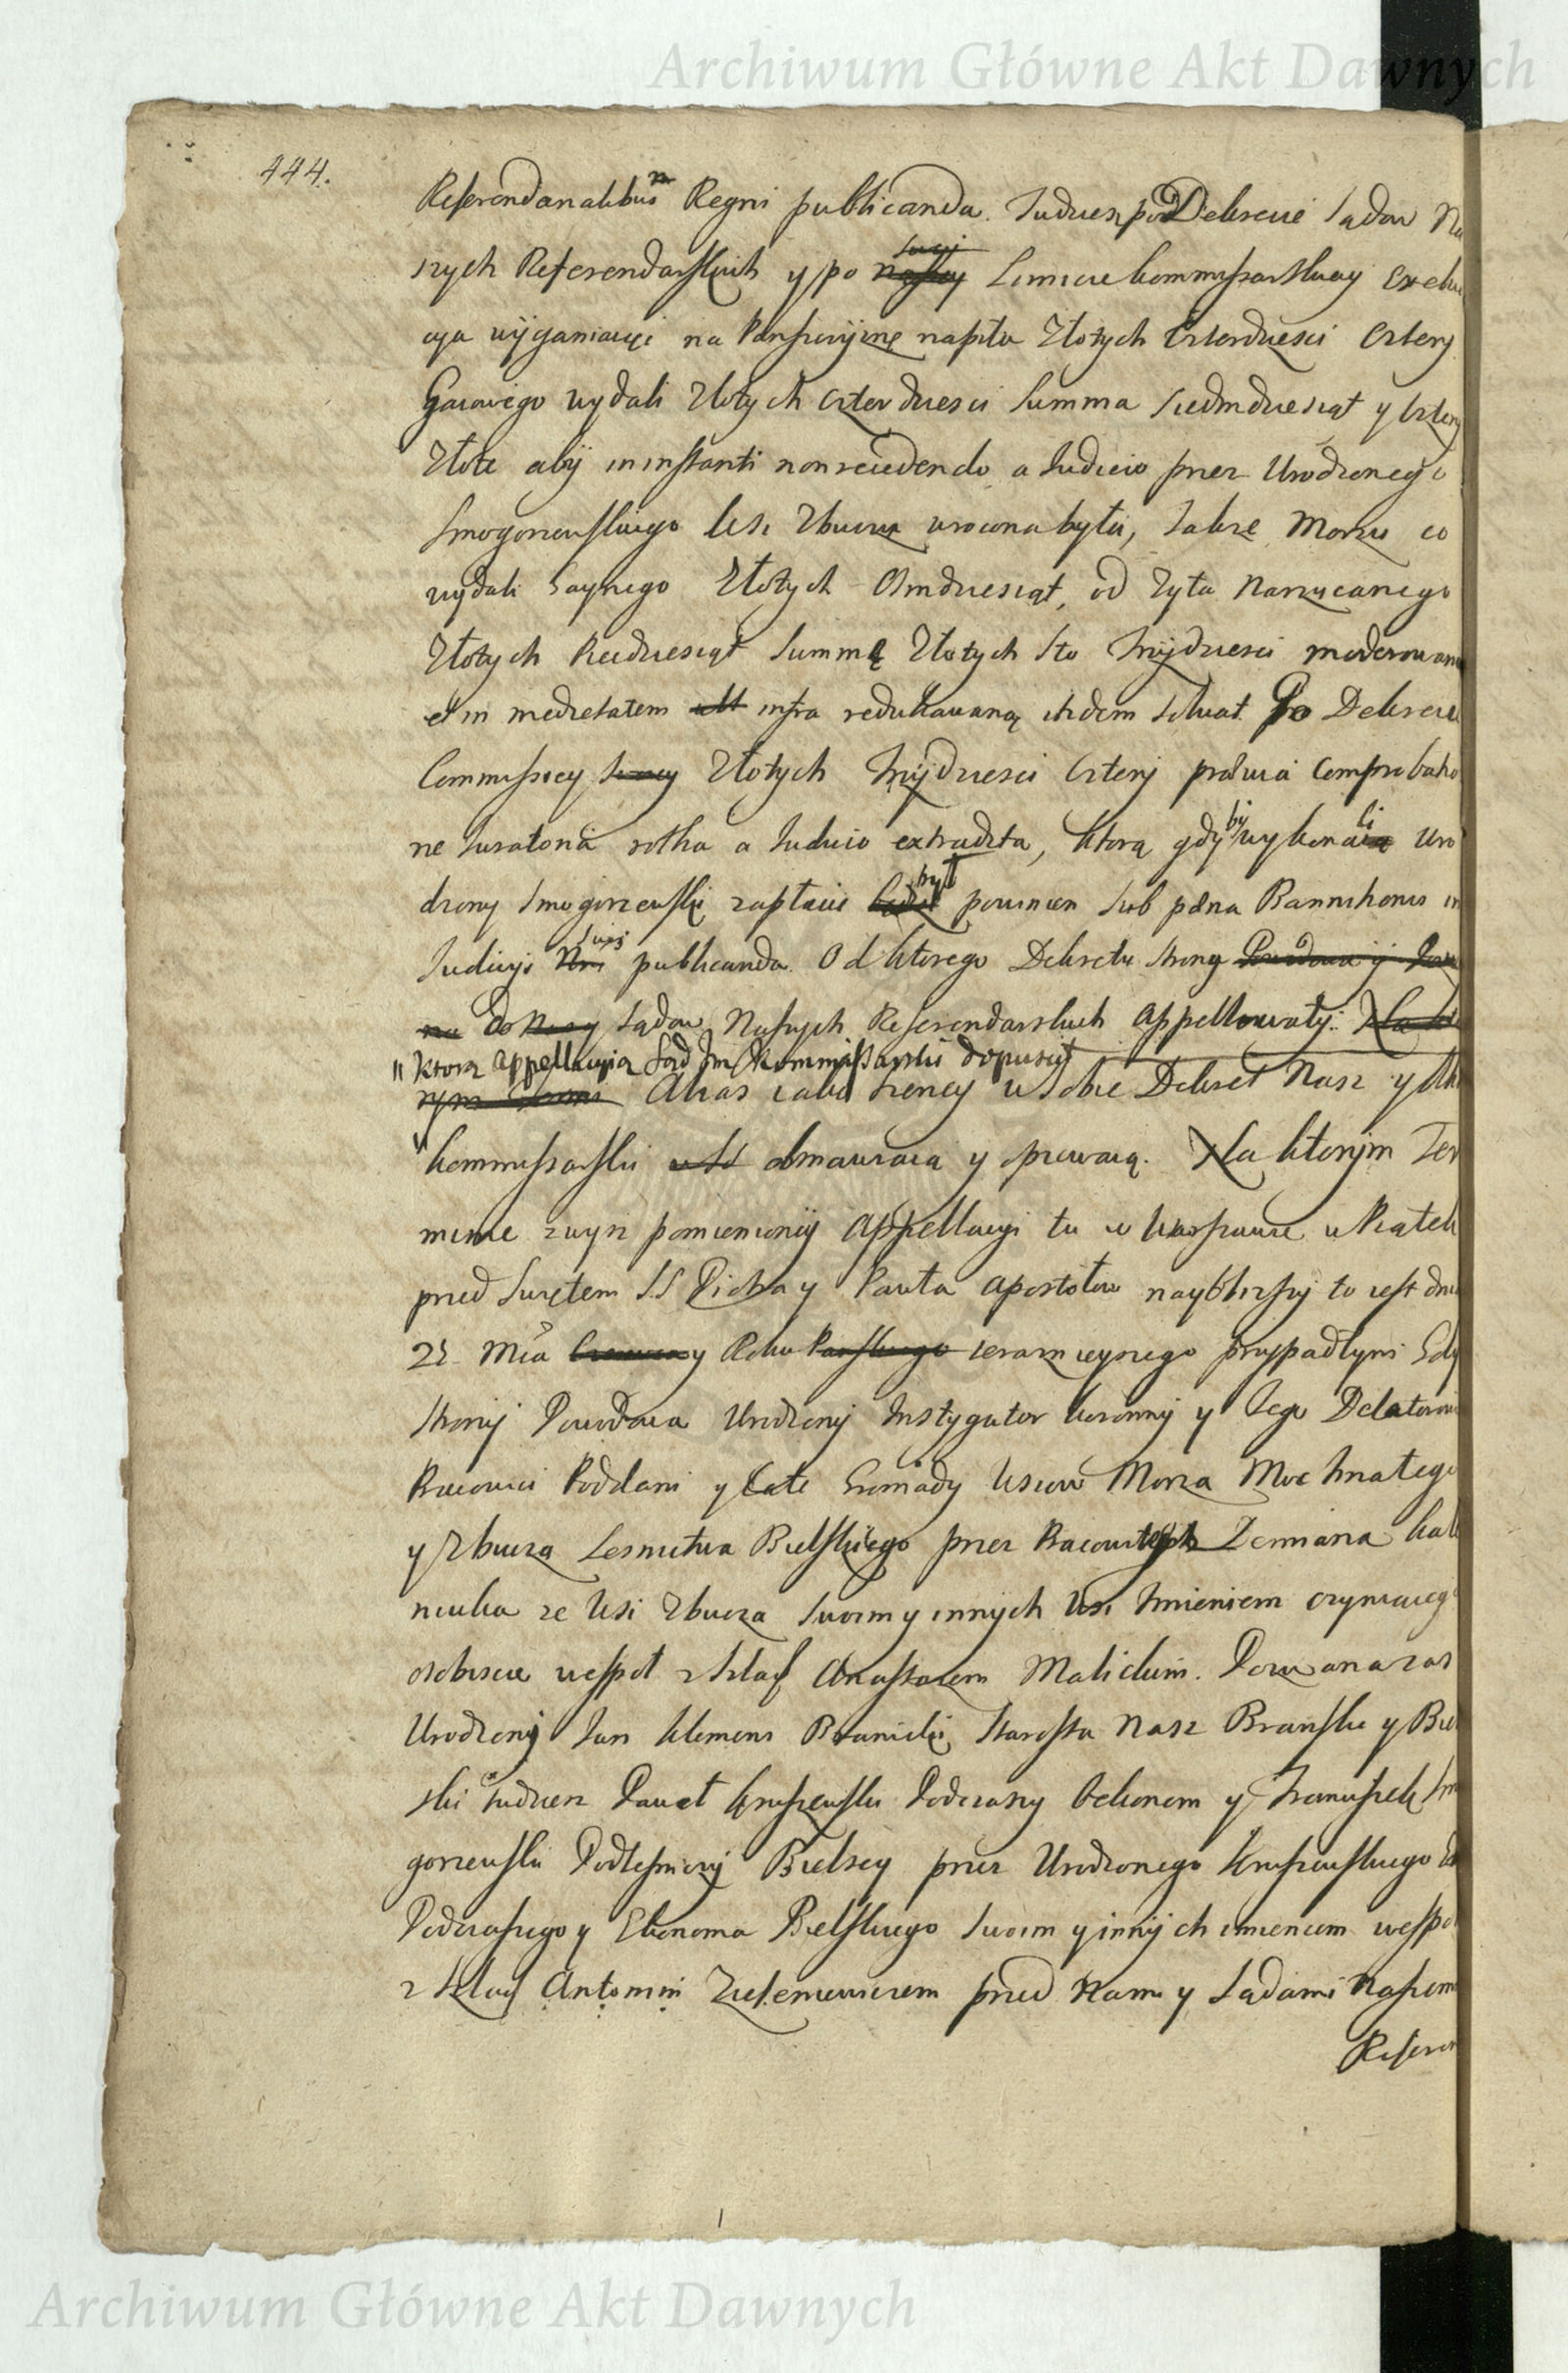 Archiwum Główne Akt Dawnych
444.
Referendarialibus Regni publicanda. Tudziesz po Dekrecie Sądow Na
szych Referendarskich y po naszey swej Commissarskiey Exeku
cya na napiła Złotych Czterdziesci Cztery
Gaiowego wydali Złotych czterdziesci Summa siedmdziesiąt y cztery
Złote aby in instanti non recedendo a Judicio przez Urodzonego
Smogorzewskiego Wsi Zbucza wrocona była, Także Morze co
wydali Złotych Osmdziesiąt, od żyta Narzucanego
Złotych Piędziesiąt Summę Złotych Sto Trzydziesci moderowaną
et in medietatem infra redukowaną itidem solvat. Po Dekrecie
Commissiey Złotych Trzydziesci Cztery praevia Comprobatio
ne Juratoria rotha a Judicio extradita, ktorą gdy by wykonali Uro
dzony Smogorzewski zapłacic był powinien sub paena Bannitionis in
Judicijs suis publicanda. Od ktorego Dekretu strony
do Sądow Naszych Referendarskich Appellowały.
" ktora appellacyia Sąd Jm Kommissarski dopuscił
Dekret Nasz y
"kommissarski obmawiaią y opiewaią. Na ktorym Ter
minie zwyż pomienioniy Appellacyi tu w Warszawie w Piątek
przed Swiętem SS Piotra y Pawła Apostołow naybliższy to iest dnia
Mca Czerwca y Roku teraznieyszego przypadłym Gdy
Strony Powodowa Urodzony Instygator koronny y Jego Delatorowie
Pracowici Poddani y Całe Gromady Wsiow Morza Mochnatego
y Zbucza Lesnictwa Bielskiego przez Pracowitego Demiana
ze Wsi Zbucza Swoim y innych Wsi Imieniem czyniącego
osobiscie wespoł z Szlach Anastazem Malickim. Pozwana zas
Urodzony Jan Klemens Branicki Starosta Nasz Branski y Biel
ski tudziesz Paweł Kruszewski Podczaszy Oekonom y Franciszek Smo
gorzewski Podlesniczy Bielscy przez Urodzonego Kruszewskiego
Podczaszego y Ekonoma Bielskiego Swoim y innych imieniem wespoł
z Szlach Antonim przed Nami y Sądami Naszemi
Referen
Archiwum Główne Akt Dawnych